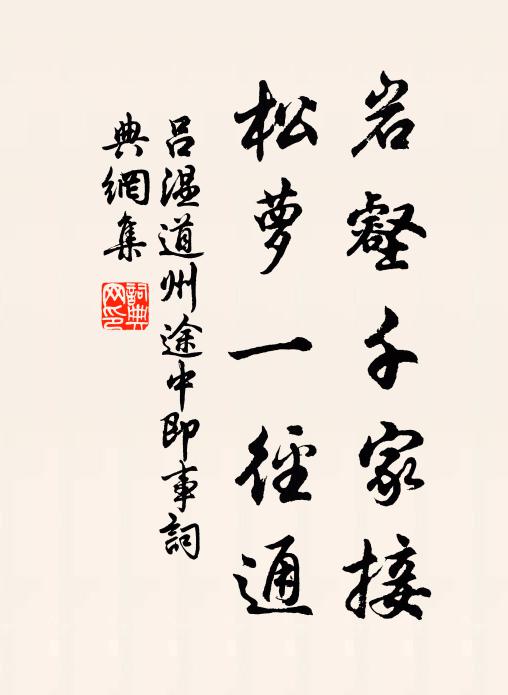 岩壑千家接
松萝一径通
吕温道州途中即事詞
典網集
詞典网印